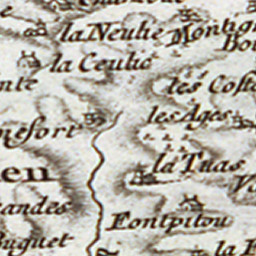 la Neulie
Montign
la Ceulie
les Cost
les Ages
nefort
la Tuas
en
andes
Fontpitou
uguet